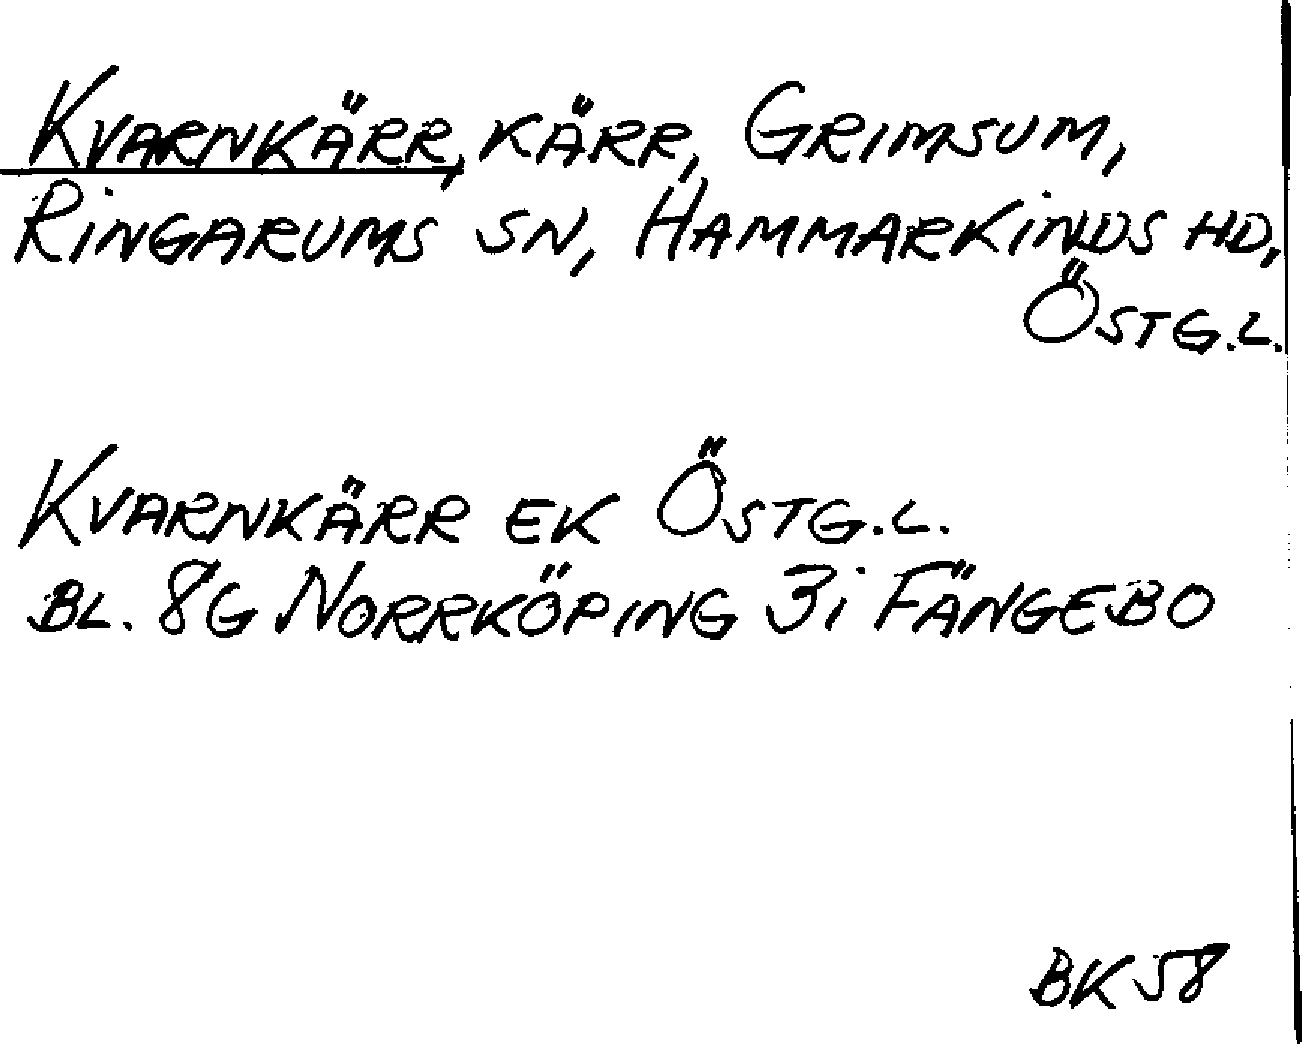 KVARNKÄRR, KÄRR, GRIMSUM,
RINGARUMS SN, HAMMARKINDS HD,
ÖSTG.L.
KVARNKÄRR EK ÖSTG.L.
BL. 8G NORRKÖPING 3i FÄNGEBO
BK 58